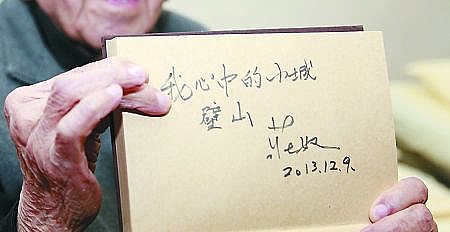 我心中的小城
璧山
2013.12.9.